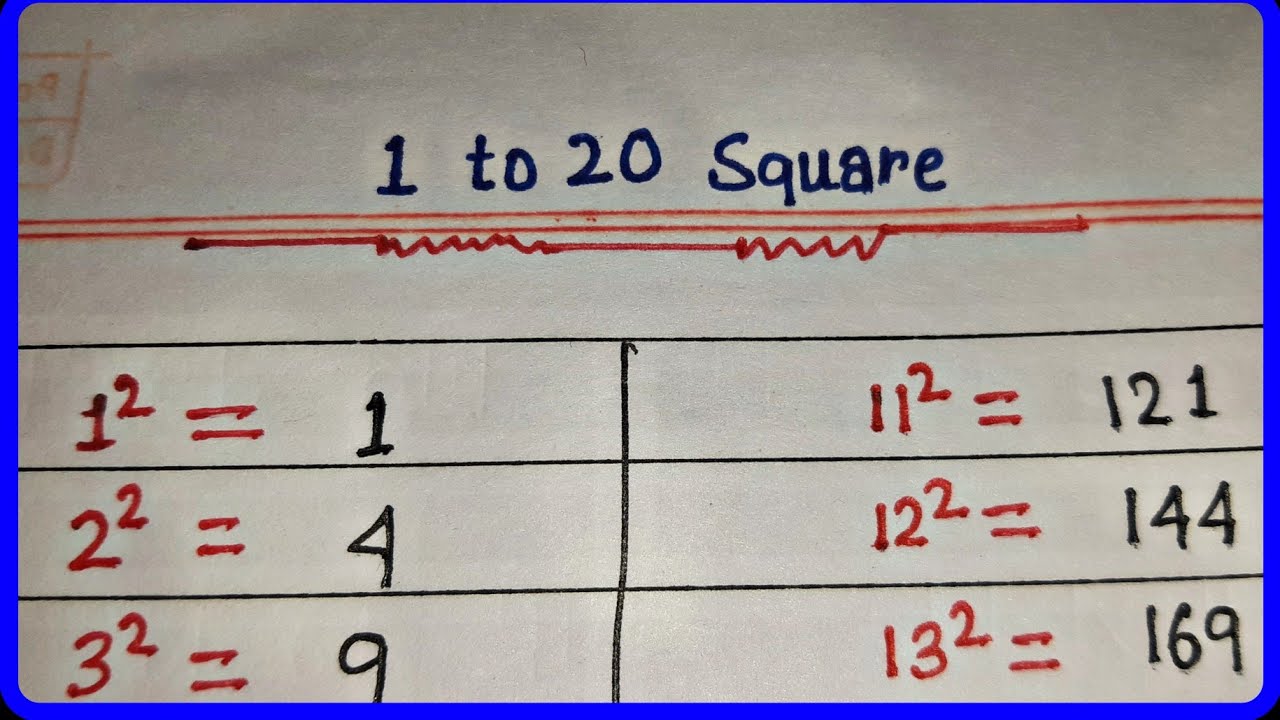 1 to 20 Square
1² = 1 11² = 121
2² = 4 12² = 144
3² = 9 13² = 169